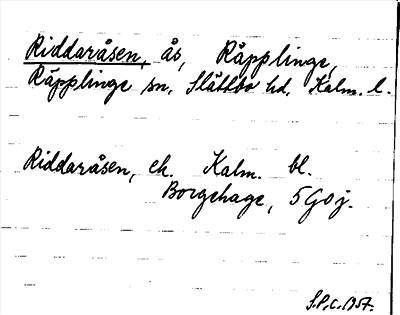 Riddaråsen, ås, Räpplinge,
Räpplinge sn. Slättbo hd. Kalm. l.
Riddaråsen, ek. Kalm. bl.
Borgehage, 5G0j.
S.P.C. 1957.